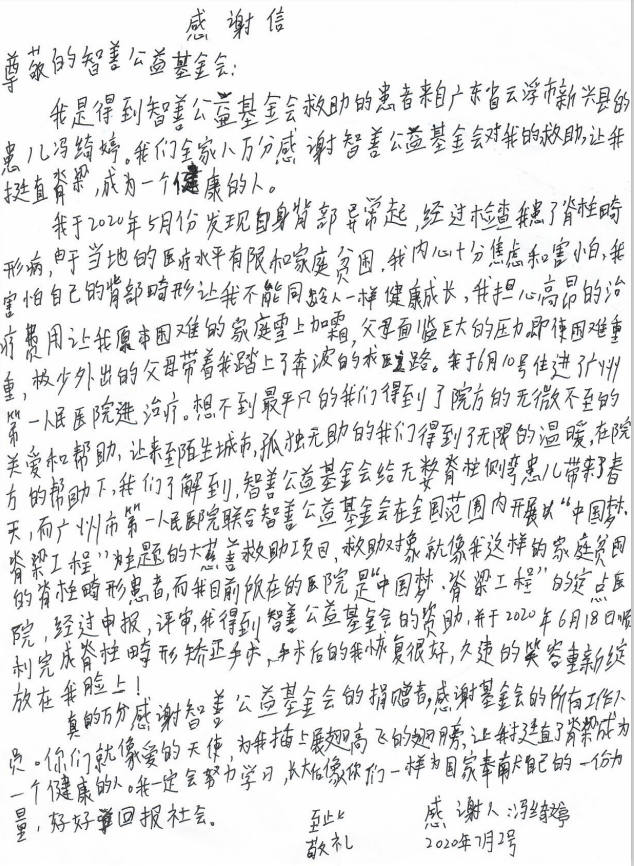 感谢信
尊敬的智善公益基金会:
我是得到智善公益基金会救助的患者来自广东省云浮市新兴县的
患儿冯绮婷。我们全家人万分感谢智善公益基金会对我的救助,让我
挺直脊梁,成为一个健康的人。
我于2020年5月份发现自身背部异常起,经过检查我患了脊柱畸
形病,由于当地的医疗水平有限和家庭贫困,我内心十分焦虑和害怕,我
害怕自己的背部畸形让我不能同龄人一样健康成长,我担心高昂的治
疗费用让我原本困难的家庭雪上加霜,父母面临巨大的压力。即使困难重
重,极少外出的父母带着我踏上了奔波的求医路。我于6月10号住进了广州
第一人民医院进治疗。想不到最平凡的我们得到了院方的无微不至的
关爱和帮助,让来到陌生城市,孤独无助的我们得到了无限的温暖,在院
方的帮助下,我们了解到,智善公益基金会给无数脊柱侧弯患儿带来了春
天,而广州市第一人民医院联合智善公益基金会在全国范围内开展以“中国梦·
脊梁工程”为主题的大慈善救助项目,救助对象就像我这样的家庭贫困
的脊柱畸形患者,而我目前所在的医院是“中国梦·脊梁工程”的定点医
院,经过申报,评审,我得到智善公益基金会的资助,并于2020年6月18日顺
利完成脊柱畸形矫正手术,手术后的我恢复很好,久违的笑容重新绽
放在我脸上!
真的万分感谢智善公益基金会的捐赠者,感谢基金会的所有工作人
员。你们就像爱的天使,为我插上展翅高飞的翅膀,让我挺直了脊梁成为
一个健康的人。我一定会努力学习,长大后像你们一样为国家奉献自己的一份力
量,好好回报社会。
至此
敬礼
感谢人:冯绮婷
2020年7月2号